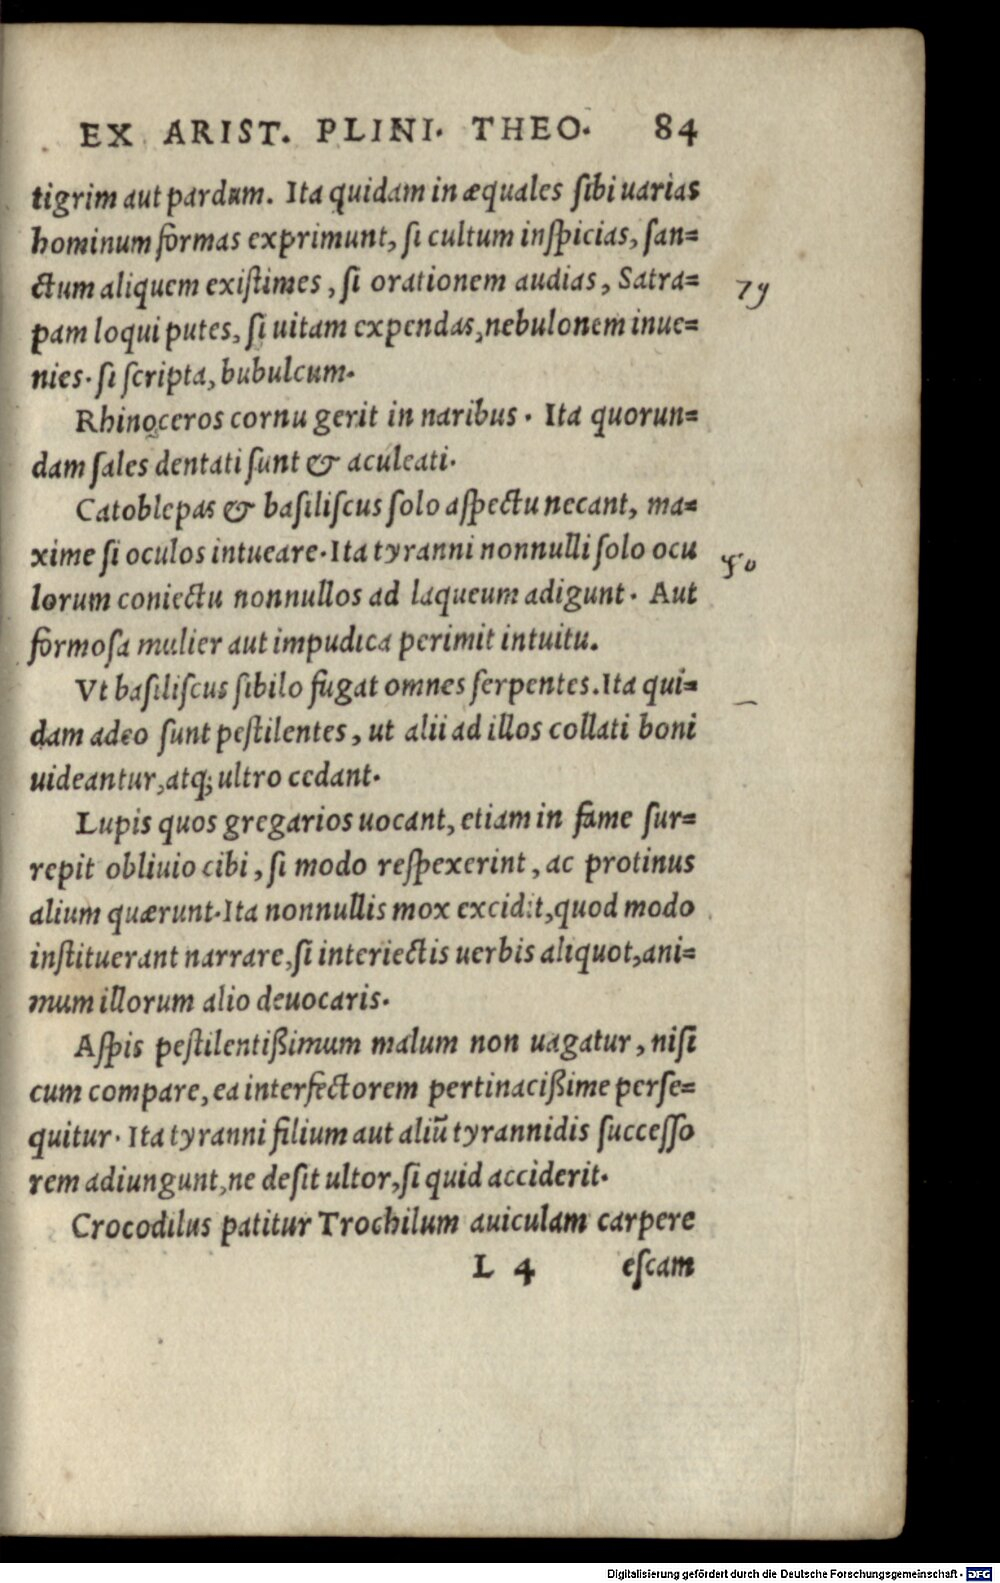 EX ARIST. PLINI. THEO. 84
tigrim aut pardum. Ita quidam inæquales sibi uarias
hominum formas exprimunt, si cultum inspicias, san=
ctum aliquem existimes, si orationem audias, Satra=
pam loqui putes, si uitam expendas, nebulonem inue=
nies. si scripta, bubulcum.
Rhinoceros cornu gerit in naribus. Ita quorun=
dam sales dentati sunt & aculeati.
Catoblepas & basiliscus solo aspectu necant, ma=
xime si oculos intueare. Ita tyranni nonnulli solo ocu
lorum coniectu nonnullos ad laqueum adigunt. Aut
formosa mulier aut impudica perimit intuitu.
Vt basiliscus sibilo fugat omnes serpentes. Ita qui=
dam adeo sunt pestilentes, ut alii ad illos collati boni
uideantur, atq; ultro cedant.
Lupis quos gregarios uocant, etiam in fame sur=
repit obliuio cibi, si modo respexerint, ac protinus
alium quærunt. Ita nonnullis mox excidit, quod modo
instituerant narrare, si interiectis uerbis aliquot, ani=
mum illorum alio deuocaris.
Aspis pestilentißimum malum non uagatur, nisi
cum compare, ea interfectorem pertinacißime perse=
quitur. Ita tyranni filium aut aliũ tyrannidis successo
rem adiungunt, ne desit ultor, si quid acciderit.
Crocodilus patitur Trochilum auiculam carpere
L 4 escam
Digitalisierung gefördert durch die Deutsche Forschungsgemeinschaft - DFG